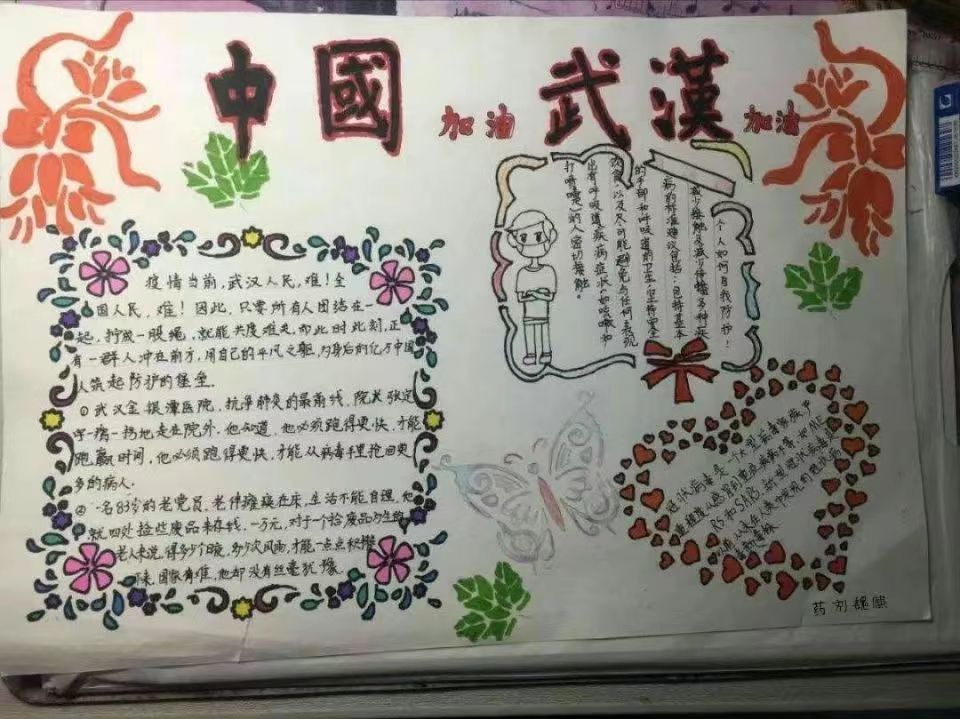 中國 加油 武漢 加油
疫情当前，武汉人民，难！全
国人民，难！因此，只要所有人团结在一
起，拧成一股绳，就能共度难关，而此时此刻，正
有一群人冲在前方，用自己的平凡之躯，为身后的亿万中国
人筑起防护的堡垒。
①武汉金银潭医院，抗净肺炎的最前线，院长张定
宇一瘸一拐地走在院外，他知道，他必须跑得更快，才能
跑赢时间，他必须跑得更快，才能从病毒手里抢回更
多的病人。
②一名83岁的老党员，老伴瘫痪在床，生活不能自理，他
就四处捡些废品来存钱，一万元，对于一个捡废品为生的
老人来说，得多少个日夜，多少次风雨，才能一点点积攒
下来，国家有难，他却没有丝毫犹豫。
个人如何自我防护！
减少接触及减少传播多种疾
病的标准建议包括：保持基本
的手部和呼吸道的卫生，坚持安全
饮食，以及尽可能避免与任何表现
出有呼吸道疾病症状(如咳嗽和
打喷嚏)的人密切接触。
冠状病毒是一个大型病毒家族，
重症
RS和SARS，新型冠状病毒是
以前从未在人体中发现的冠状病
毒新毒株
药剂 魏